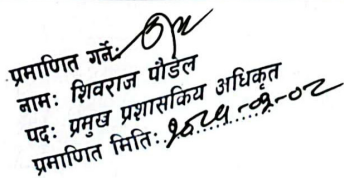 प्रमाणित गर्नेः
नामः शिवराज पौडेल
पदः प्रमुख प्रशासकिय अधिकृत
प्रमाणित मितिः